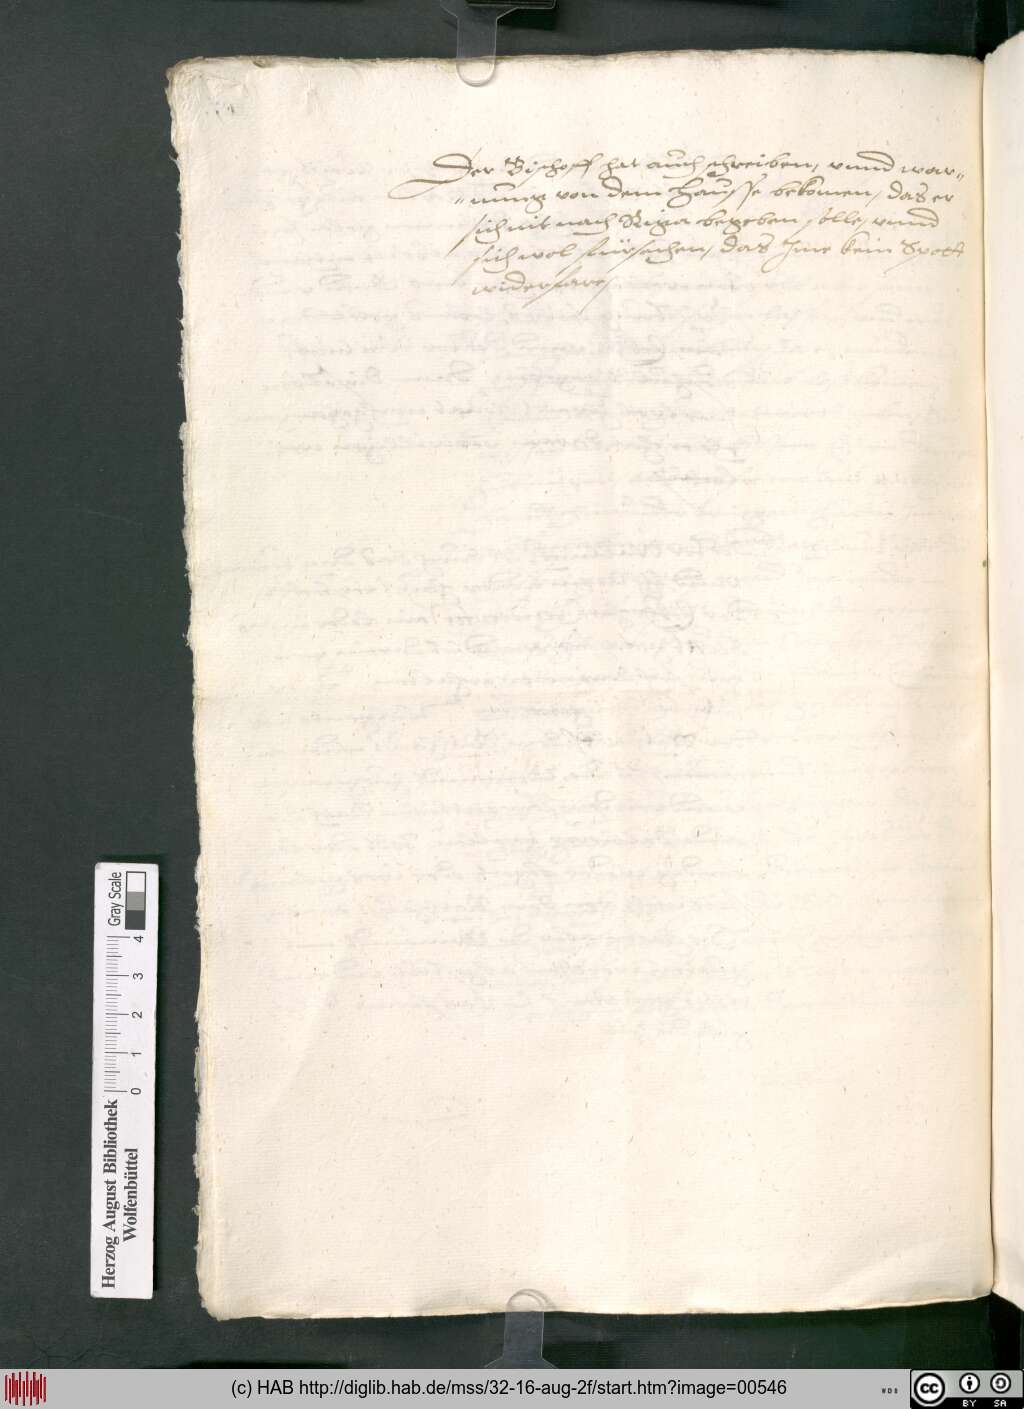 Der Bischoff hat auch schreiben, vnnd war„
„nung von dem Hausse bekomen, das er
sich nit nach Riga begeben solle, vnnd
sich wol fürsehen, das Jme kein Spott
widerfare,
Gray Scale
0 1 2 3 4
Herzog August Bibliothek
Wolfenbüttel
(c) HAB http://diglib.hab.de/mss/32-16-aug-2f/start.htm?image=00546
WDB
cc BY SA